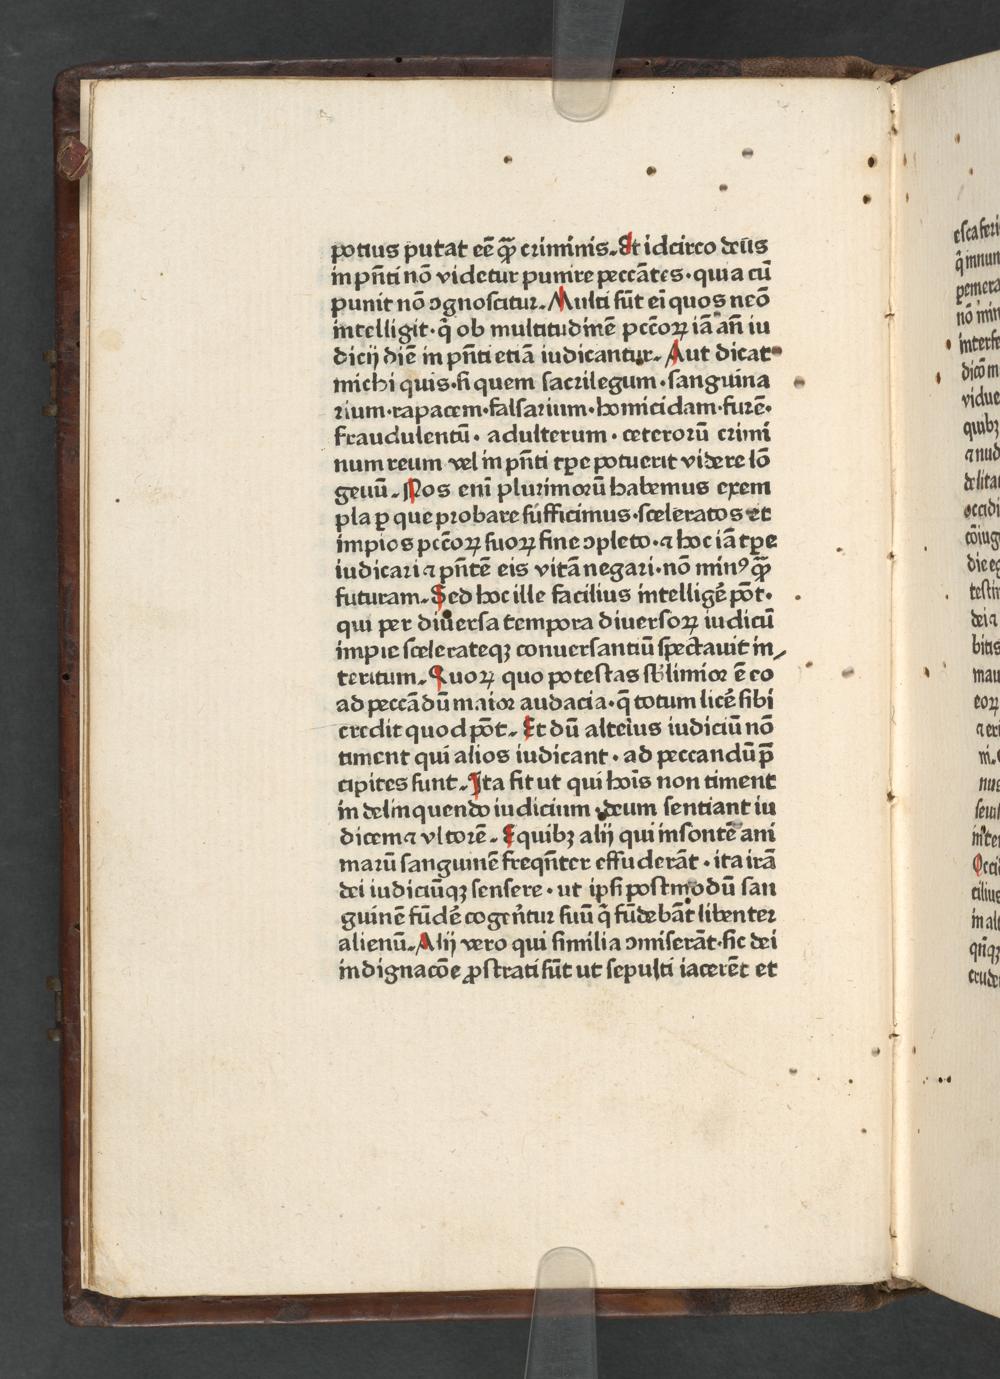 potius putat eē q̄ꝫ criminis. Et idcirco deūs
in pn̄ti nō videtur punire peccātes · quia cū
punit nō ꝯgnoscitur. Multi sūt ei quos neō
intelligit · q̄ ob multitudinē pcc̄oꝝ iā an̄ iu
dicij diē in pn̄ti etiā iudicantur. Aut dicat
michi quis · si quem sacrilegum · sanguina
rium · rapacem · falsarium · homicidam · furē ·
fraudulentū · adulterum · ceterorū crimi
num reum vel in pn̄ti tp̄e potuerit videre lō
geuū. Nos enī plurimorū habemus exem
pla ꝑ que probare sufficimus · sceleratos et
impios pcc̄oꝝ suoꝝ fine ꝯpleto · ⁊ hoc iā tp̄e
iudicari ⁊ pn̄tē eis vitā negari · nō minꝰ q̄ꝫ
futuram. Sed hoc ille facilius intelligē pōt ·
qui per diuersa tempora diuersoꝝ iudicū
impie scelerateqꝫ conuersantiū spectauit in⸗
teritum. Quoꝝ quo potestas sb̄limior ē eo
ad peccādū maior audacia · q̄ totum licē sibi
credit quod pōt. Et dū alteius iudiciū nō
timent qui alios iudicant · ad peccandū p̄
cipites sunt. Ita fit ut qui hoīs non timent
in delinquendo iudicium · deum sentiant iu
dicem ⁊ vltorē. E quibꝫ alij qui insontē ani
marū sanguinē freqn̄ter effuderāt · ita irā
dei iudiciūqꝫ sensere · ut ipsi postmodū san
guinē fūdē cogen̄tur suū q̄ fūdebāt libenter
alienū. Alij vero qui similia ꝯmiserāt · sic dei
indignacōe ꝓstrati sūt ut sepulti iacerēt et